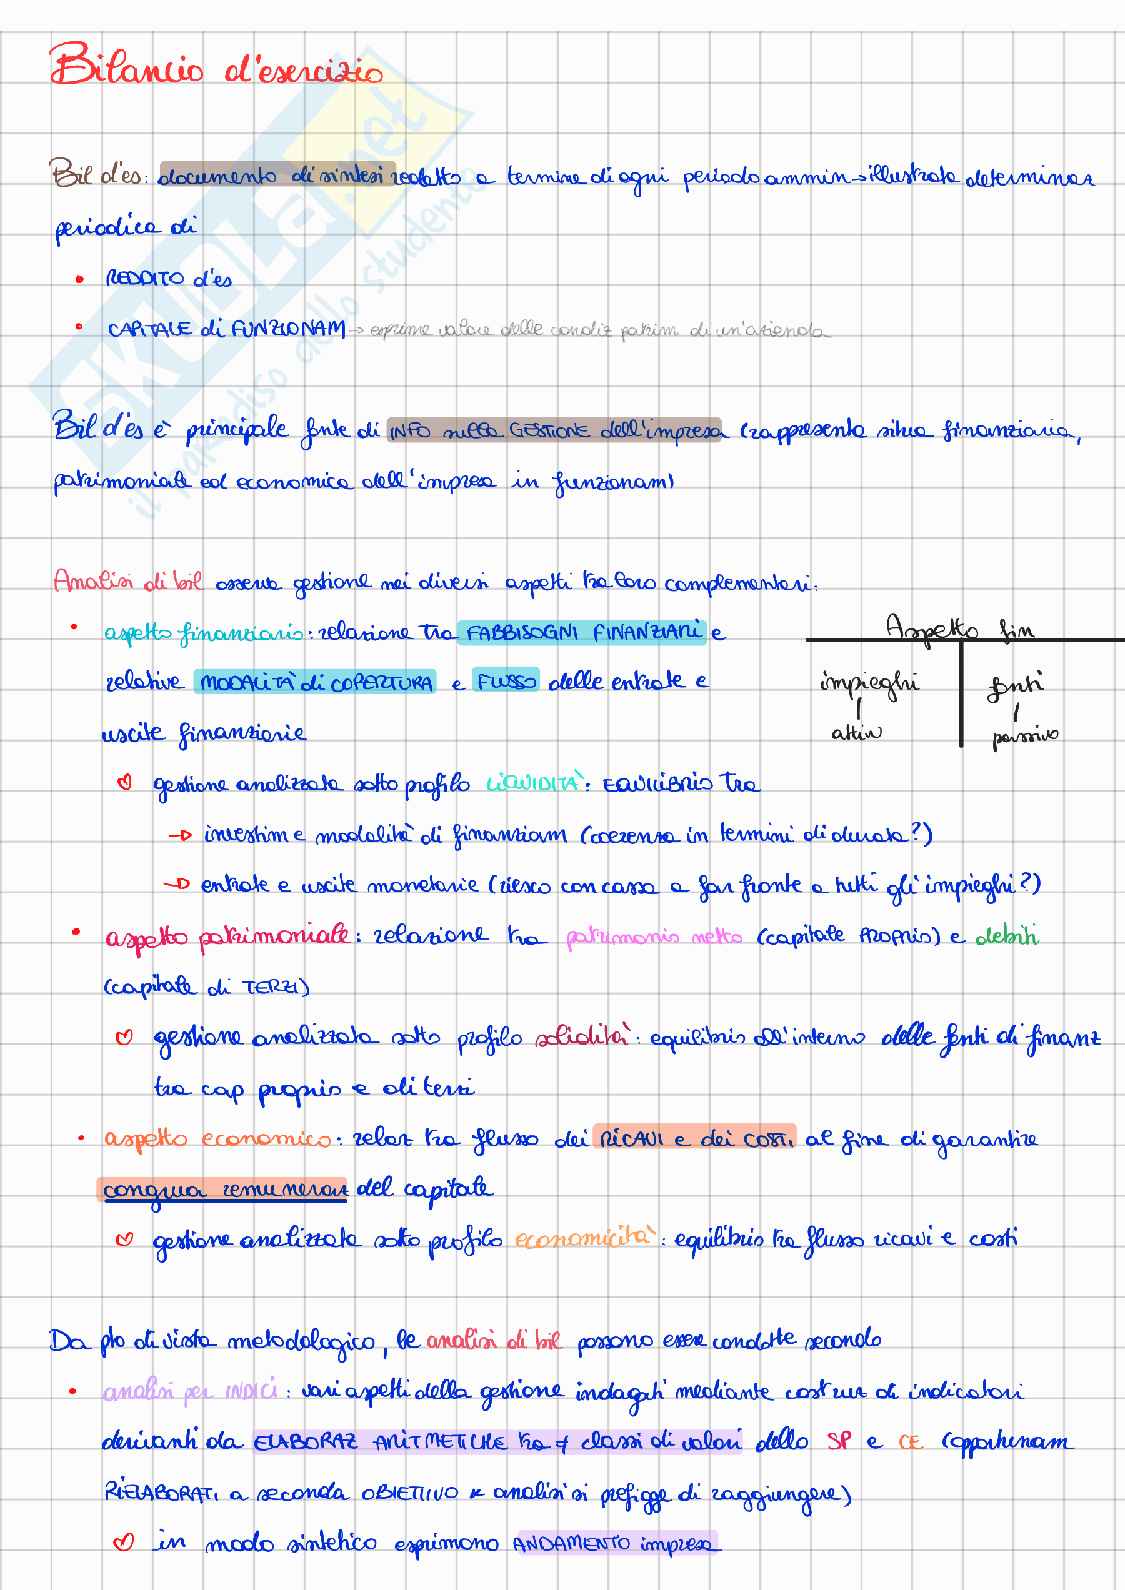 Bilancio d'esercizio
Bil d'es: documento di sintesi redatto a termine di ogni periodo ammin → illustrata determinaz
periodica di
• REDDITO d'es
• CAPITALE di FUNZIONAM → esprime valore delle condiz patrim di un'azienda
Bil d'es è principale fonte di INFO sulla GESTIONE dell'impresa (rappresenta situa finanziaria,
patrimoniale ed economica dell'impresa in funzionam)
Analisi di bil osserva gestione nei diversi aspetti tra loro complementari:
• aspetto finanziario: relazione tra FABBISOGNI FINANZIARI e
relative MODALITÀ di COPERTURA e FLUSSO delle entrate e
uscite finanziarie
Aspetto fin
impieghi fonti
attivo passivo
♡ gestione analizzata sotto profilo LIQUIDITÀ: EQUILIBRIO tra
→ investim e modalità di finanziam (coerenza in termini di durata?)
→ entrate e uscite monetarie (riesco con cassa a far fronte a tutti gli impieghi?)
• aspetto patrimoniale: relazione tra patrimonio netto (capitale PROPRIO) e debiti
(capitale di TERZI)
♡ gestione analizzata sotto profilo solidità: equilibrio all'interno delle fonti di finanz
tra cap proprio e di terzi
• aspetto economico: relaz tra flusso dei RICAVI e dei COSTI al fine di garantire
congrua remuneraz del capitale
♡ gestione analizzata sotto profilo economicità: equilibrio tra flusso ricavi e costi
Da pto di vista metodologico, le analisi di bil possono essere condotte secondo
• analisi per INDICI: vari aspetti della gestione indagati mediante costruz di indicatori
derivanti da ELABORAZ ARITMETICHE tra ≠ classi di valori dello SP e CE (opportunam
RIELABORATI a seconda OBIETTIVO x analisi si prefigge di raggiungere)
♡ in modo sintetico esprimono ANDAMENTO impresa
SKUOLA.net
il paradiso dello studente